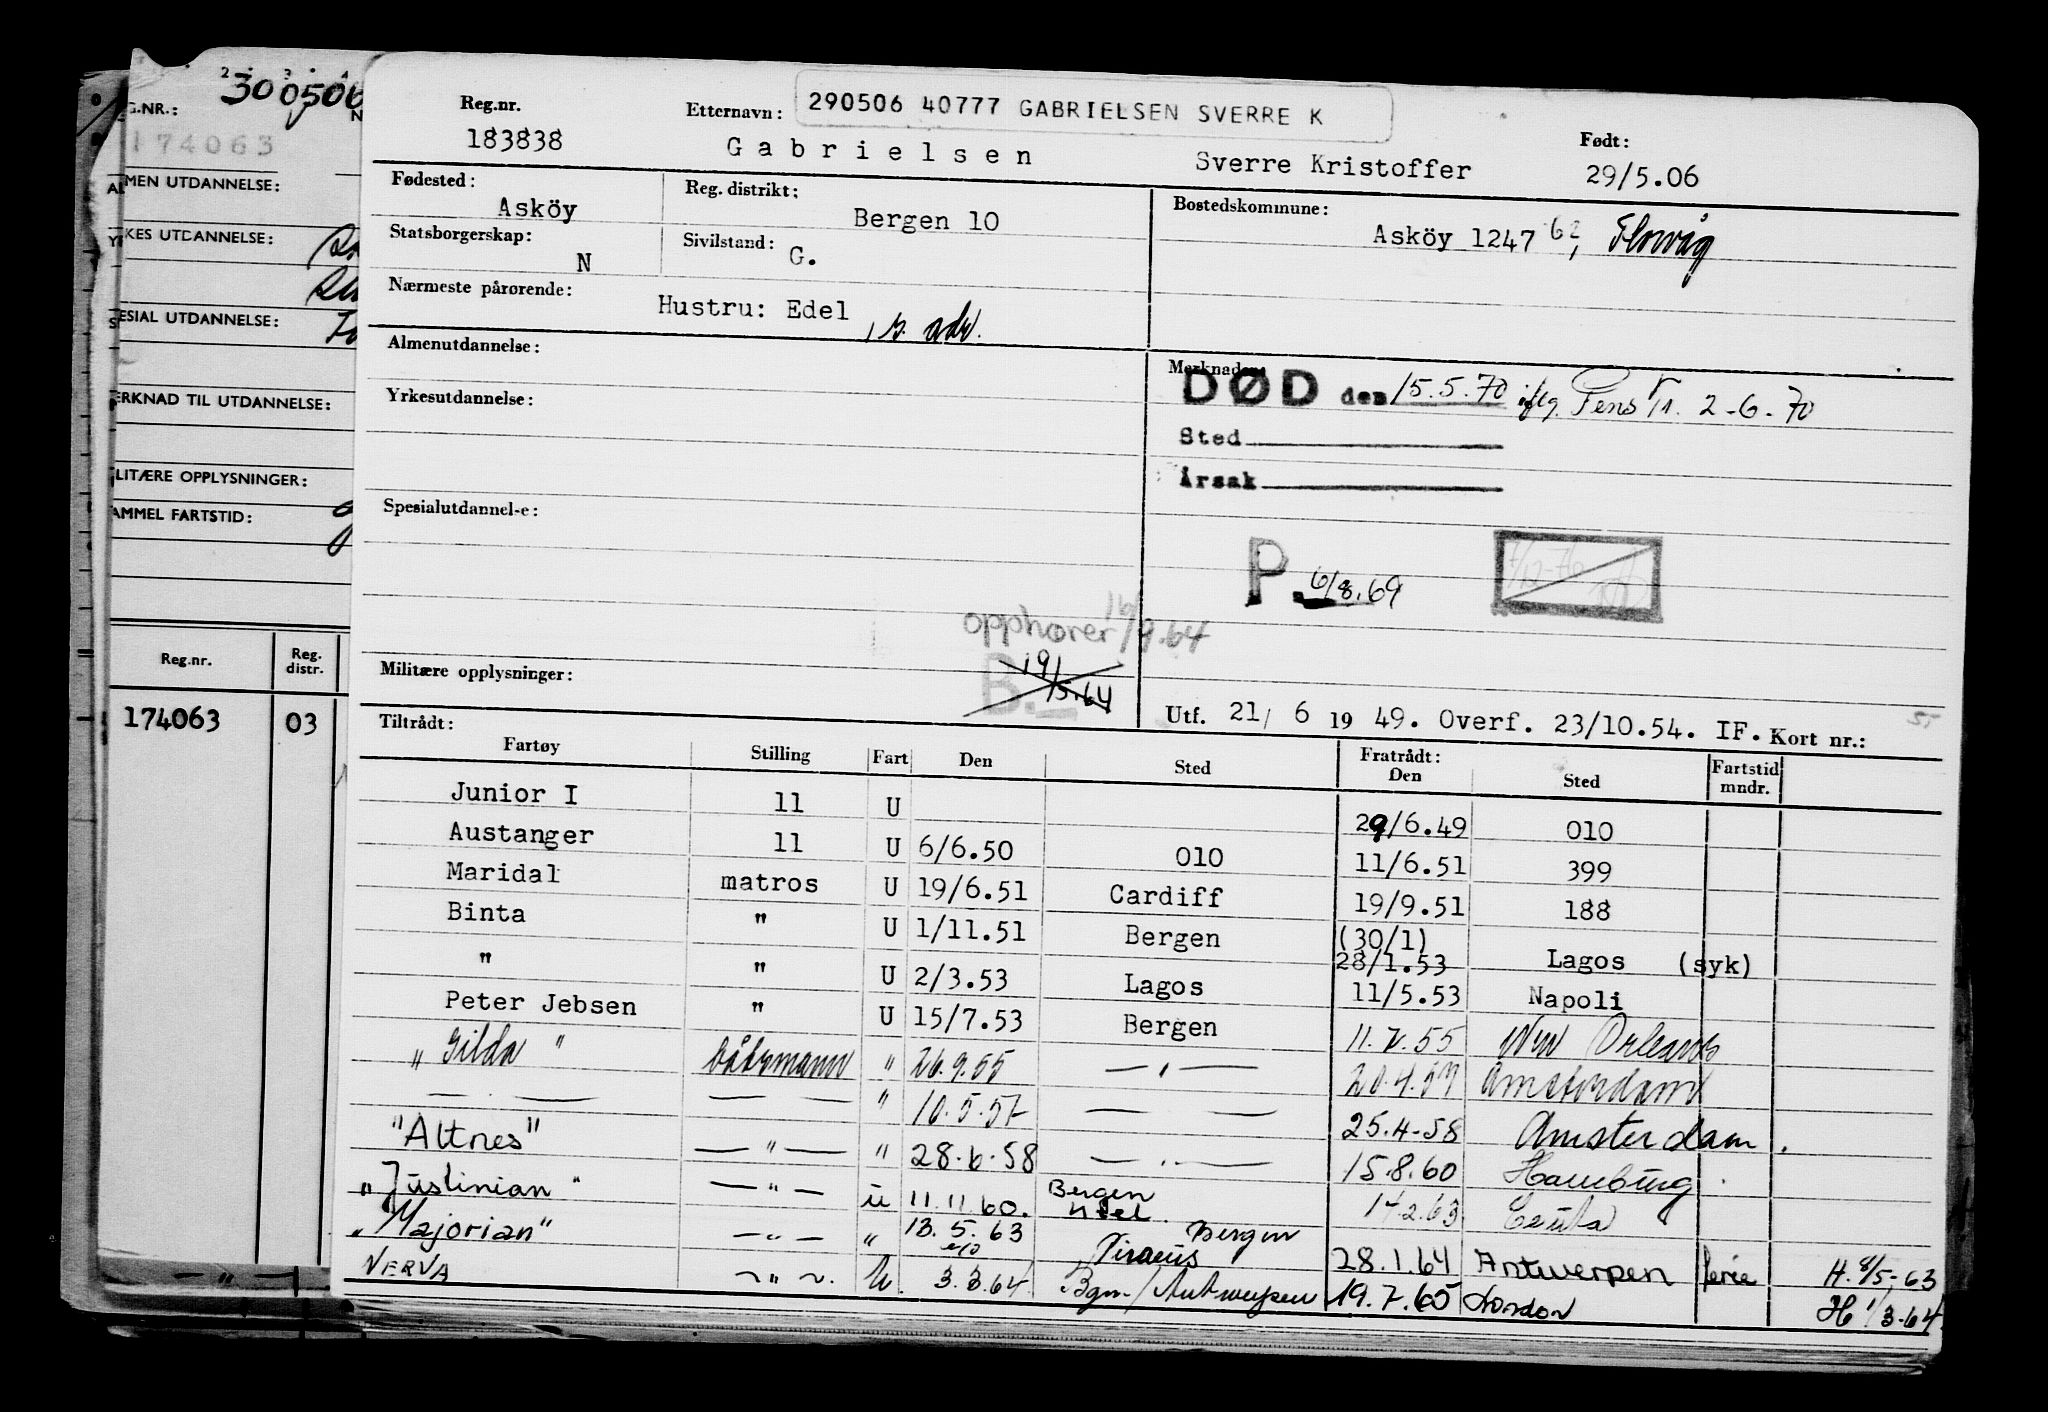 300506
G.NR.:
174063
MEN UTDANNELSE:
KES UTDANNELSE:
ESIAL UTDANNELSE:
ERKNAD TIL UTDANNELSE:
LITÆRE OPPLYSNINGER:
AMMEL FARTSTID:
Reg.nr. Reg. distr.
174063 03
290506 40777 GABRIELSEN SVERRE K
Reg.nr. Etternavn: Født:
183838 Gabrielsen Sverre Kristoffer 29/5.06
Fødested: Reg. distrikt: Bostedskommune:
Asköy Bergen 10 Asköy 1247 62, Florvåg
Statsborgerskap: Sivilstand:
N G.
Nærmeste pårørende:
Hustru: Edel , s. adr.
Almenutdannelse: Merknader:
DØD den 15.5.70 iflg. Pens Tr. 2-6-70
Yrkesutdannelse:
Sted
Årsak
Spesialutdannel-e:
P 6/8.69
opphører 16/9.64
B. 19/5.64
Militære opplysninger:
Utf. 21/ 6 19 49. Overf. 23/10.54. IF. Kort nr.:
Tiltrådt: Fratrådt:
Fartøy Stilling Fart Den Sted Den Sted Fartstid mndr.
Junior I 11 U 29/6.49 010
Austanger 11 U 6/6.50 010 11/6.51 399
Maridal matros U 19/6.51 Cardiff 19/9.51 188
Binta " U 1/11.51 Bergen (30/1) 28/1.53 Lagos (syk)
" " U 2/3.53 Lagos 11/5.53 Napoli
Peter Jebsen " U 15/7.53 Bergen 11.7.55 New Orleans
"Gilda" båtsmann " 26.9.55 — " — 20.4.57 Amsterdam
— " — — — " 10.5.57 — — 25.4.58 Amsterdam.
"Altnes" — " — " 28.6.58 — " — 15.8.60 Hamburg
"Justinian" — " — u 11.11.60. Bergen 14.2.63 Ceuta
"Majorian" — " — " 13.5.63 Bergen Piraeus 28.1.64 Antwerpen ferie H. 8/5-63
VERVA — " — U. 3.3.64 Bgn./Antwerpen 19.7.65 London H 1/3-64